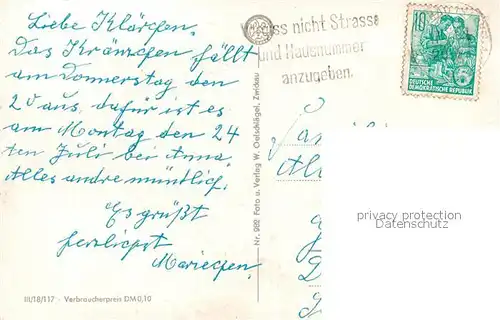 Liebe Klärchen.
Das Kränzchen fällt
am Donnerstag den
20 aus, dafür ist es
am Montag den 24
ten Juli bei Anna,
Alles andre müntlich.
Es grüßt
herzlichst
Mariechen.
III/18/117 - Verbraucherpreis DM 0,10
Nr. 922 Foto u. Verlag W. Oelschlägel, Zwickau
nicht Strasse
und Hausnummer
anzugeben.
10
DEUTSCHE
DEMOKRATISCHE REPUBLIK
privacy protection
Datenschutz